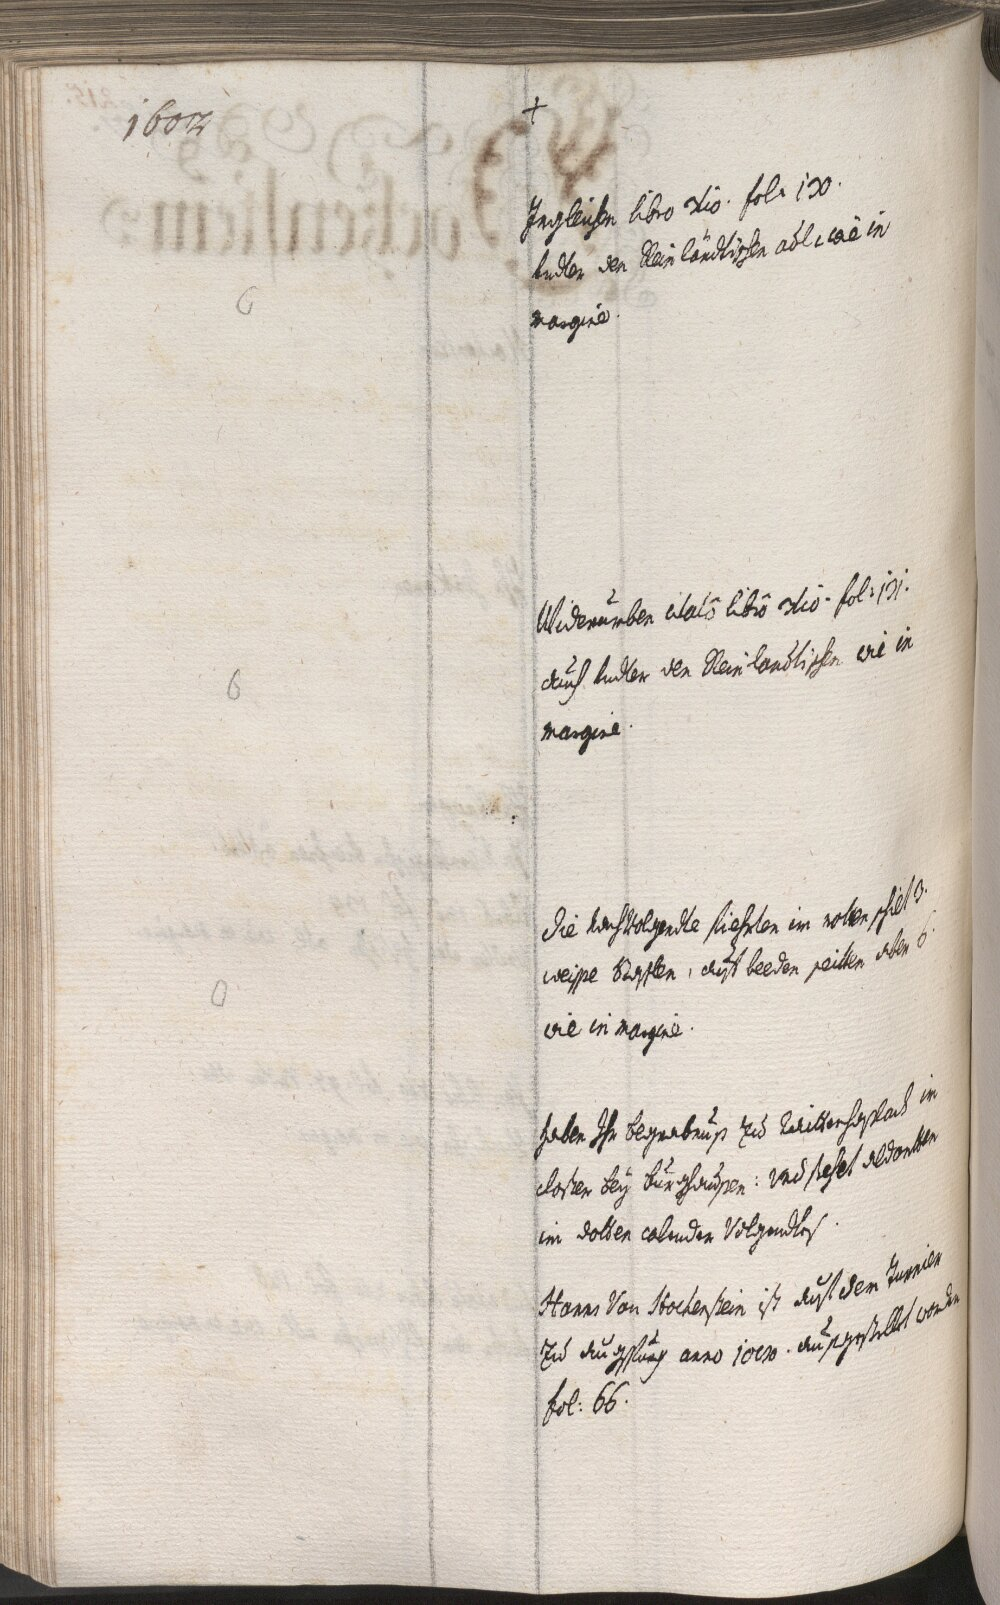 1602
+
Ingleichen libro dio. fol.
under den Reinländischen adl, wie in
margine.
6
Widerumben citato libro dio. fol:
auch under den Reinlandischen wie in
margine.
6
Die nachvolgendte fiehrten im rotten schilt 3.
weisse, auf beeden seitten aber 6
0
wie in margine.
haben Ihr begrabnus zu Raittenhaslach im
closter bey burghausen: und stehet aldorten
im dotten calender Volgendtes.
Hanns Von Hochenstein ist auf dem Turnier
zu Augspurg anno aufgestellet worden
fol: 66.